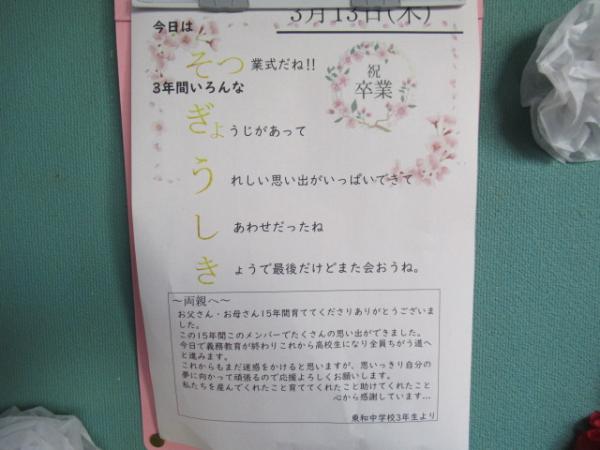 3月13日(木)
今日は
そつ業式だね!!
祝
卒業
3年間いろんな
ぎょうじがあって
うれしい思い出がいっぱいできて
しあわせだったね
きょうで最後だけどまた会おうね。
～両親へ～
お父さん・お母さん15年間育ててくださりありがとうございま
した。
この15年間このメンバーでたくさんの思い出ができました。
今日で義務教育が終わりこれから高校生になり全員ちがう道へ
と進みます。
これからもまだ迷惑をかけると思いますが、思いっきり自分の
夢に向かって頑張るので応援よろしくお願いします。
私たちを産んでくれたこと育ててくれたこと助けてくれたこと
心から感謝しています…
東和中学校3年生より